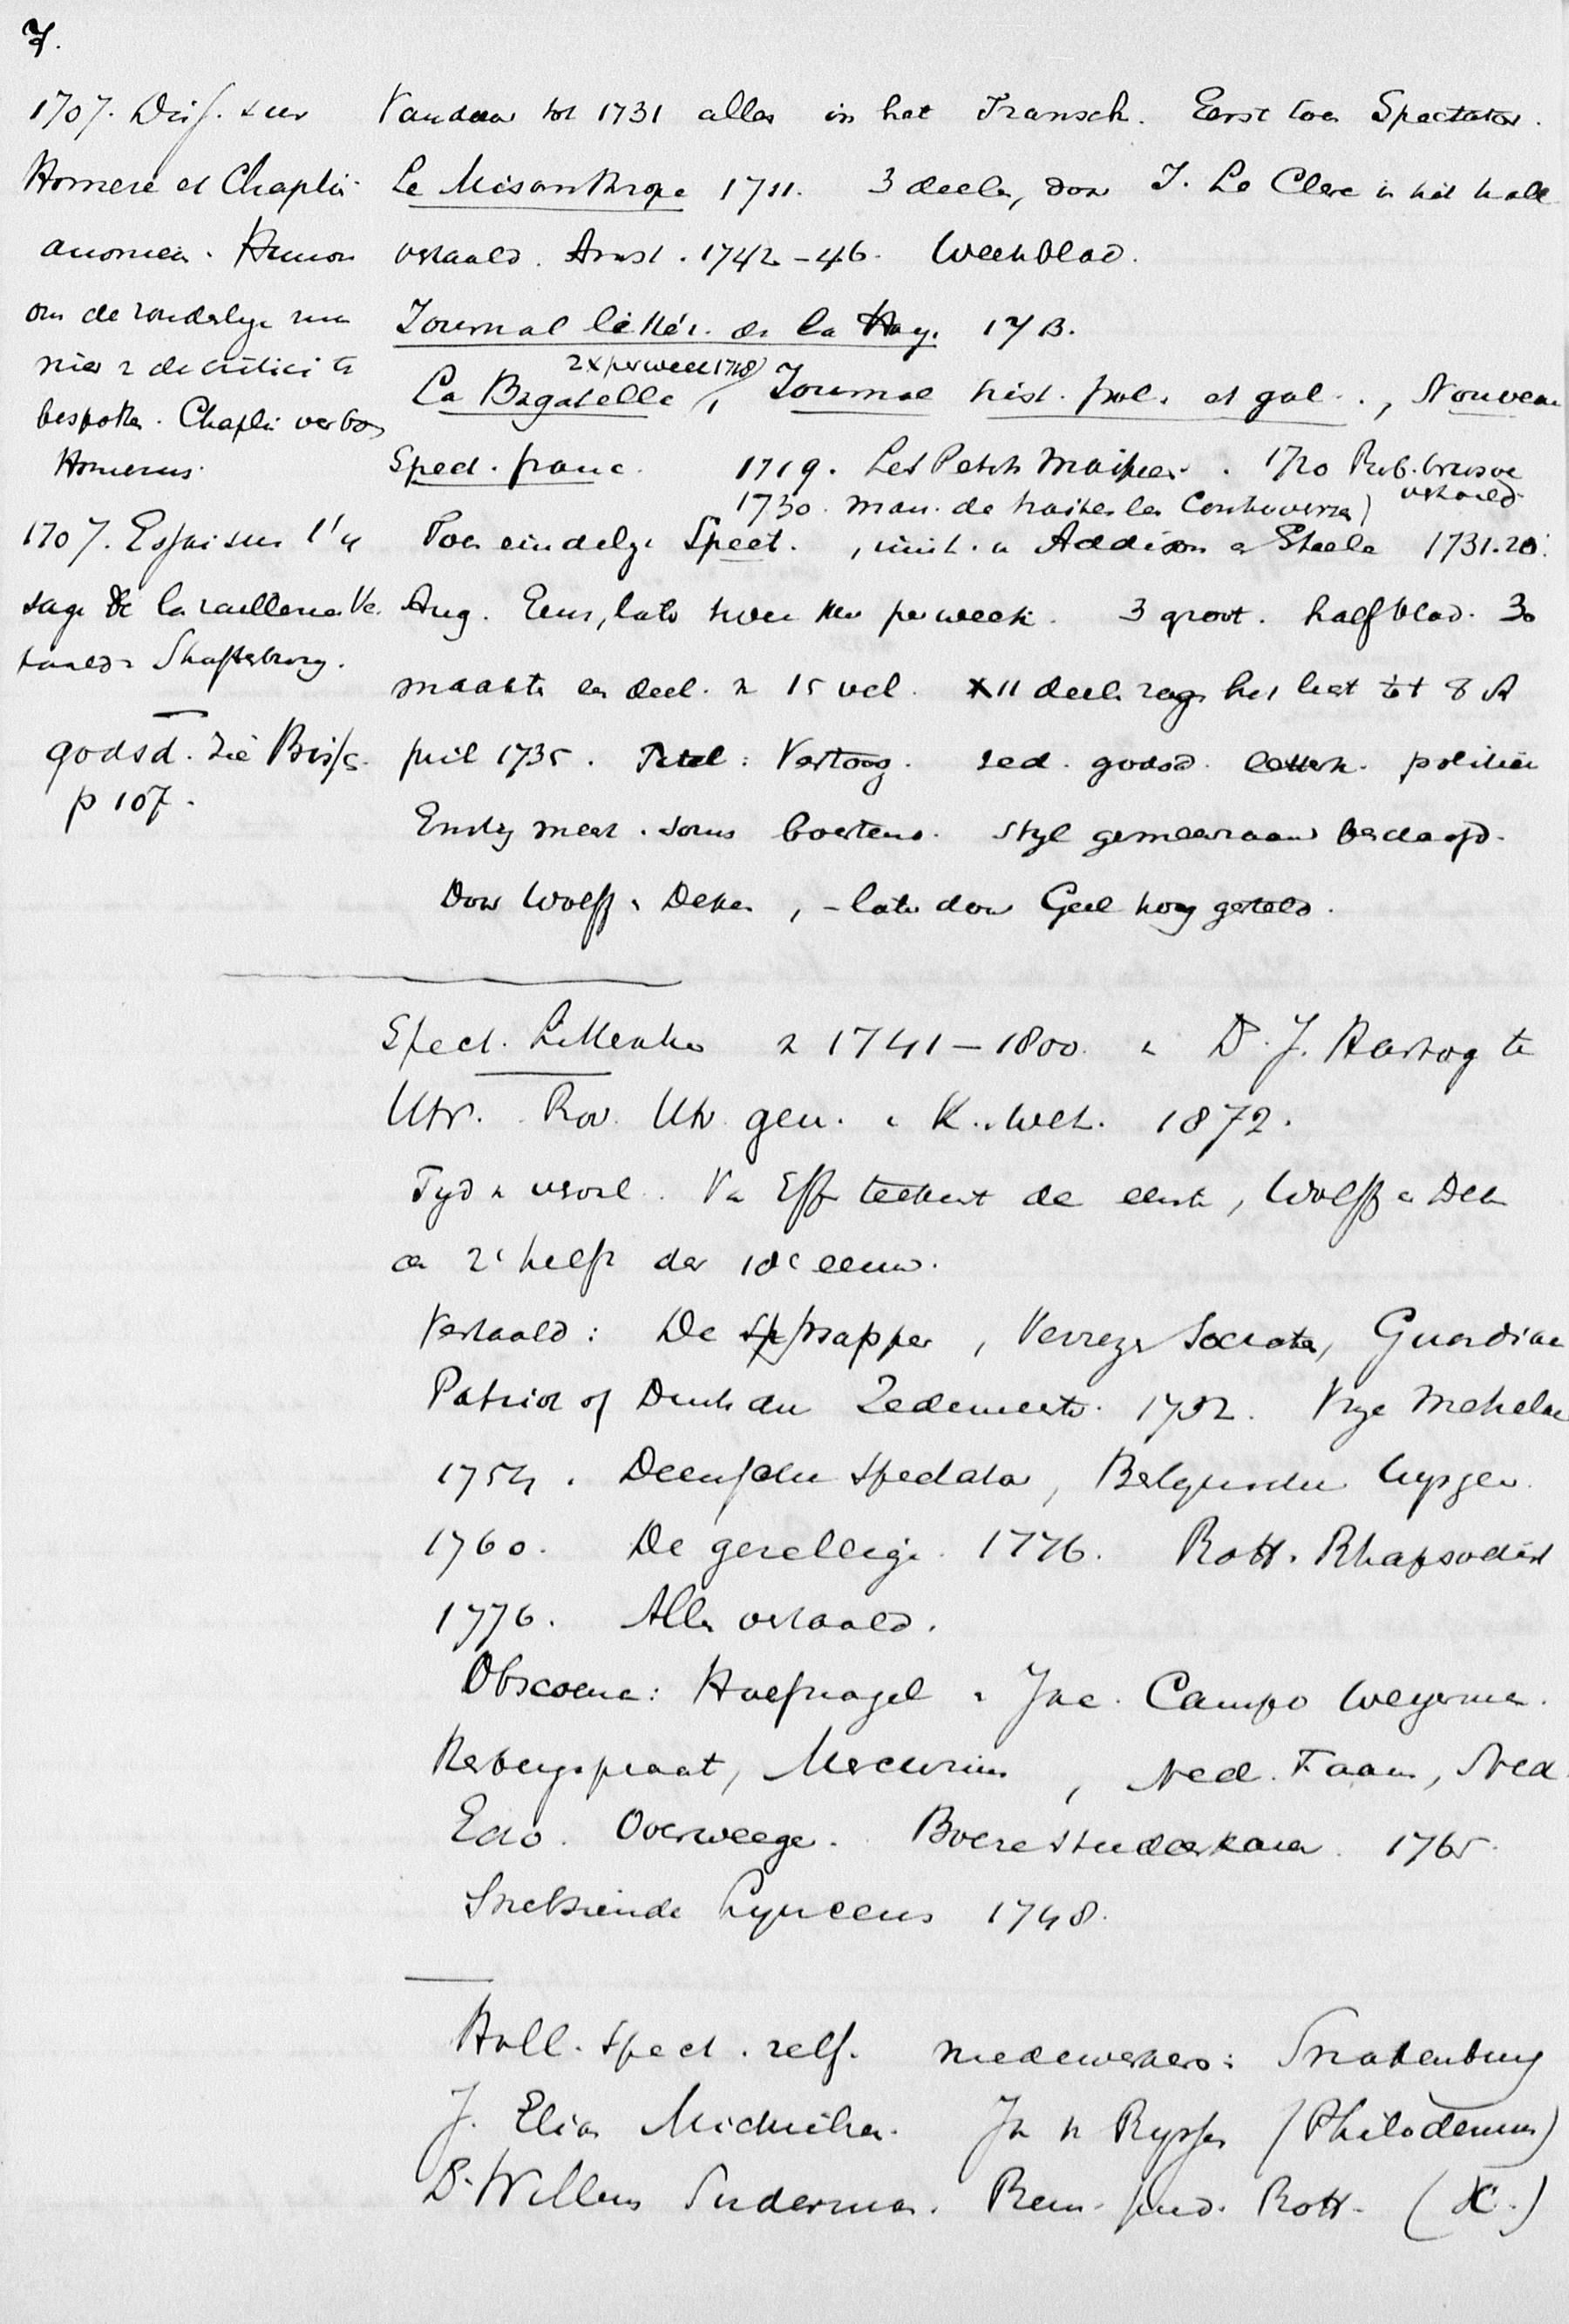 7.
1707. Diss. sur
Homere et Chaplin
anomien. Humor
om de zonderlyke ma
nier v de critici te
bespotten. Chaplin verbos
Homerus.
1707. Essai sur l'u
sage de la raillerie Ve
taald v Shaftsbury.
godsd. zie Bisss.
p 107.
Vandaar tot 1731 alles in het Fransch. Eerst toen Spectator.
Le Misanthrope 1711. 3 deelen, door J. Le Clerc in het holl
vertaald. Amst. 1742-46. Weekblad.
Journal littér. de la Haye 1713.
2x per week 1718
La Bagatelle, Journal hist. pol. et gal., Nouveau
Spect. franc. 1719. Les Petits Maitres. 1720 Rob. Crusoe
1730. Man. de traiter les Controverses) vertaald
Toen eindelyk Spect., imit. v Addison en Steele 1731. 20
Aug. Eens, later twee ker per week. 3 groot. half blad. 30
maakten een deel. v 15 vel. XII deelen zag het licht tot 8 A
pril 1735. Titel: Vertoog. zed. godsd. letterk. politiek
Ernstig meest. soms boertend. Styl gemeenzaam beschaafd.
Door Wolff en Deken, - later door Geel hoog gesteld.
Spect. Litteratuur v 1741-1800. v Dr. J. Hartog te
Utr. Prov. Utr gen. v K. en Wet. 1872.
Tyd v verval. Van Effen teekent de eerste, Wolff en Deken
de 2e helft der 18e eeuw.
Vertaald: De Snapper, Verrezen Socrates, Guardian
Patriot of Duitschen Zedemeester. 1732. Vrye Metselaar
1754. Deensche Spectator, Belgische Wysgeer.
1760. De gezellige. 1776. Rott. Rhapsodist
1776. Alle vertaald.
Obscoene: Hoefnagel en Jac. Campo Weyerman.
Herbergspraat, Mercurius, Ned. Faam, Ned.
Echo. Overweeger. Boerestudeerkamer. 1765.
Snelziende Lynceus 1748.
Holl. Spect. zelf. medewerkers: Snakenburg
J. Elias Michielsen. Jn v Rypsen (Philodemus)
Dr. Willem Suderman. Rem. pred. Rott. (X.)